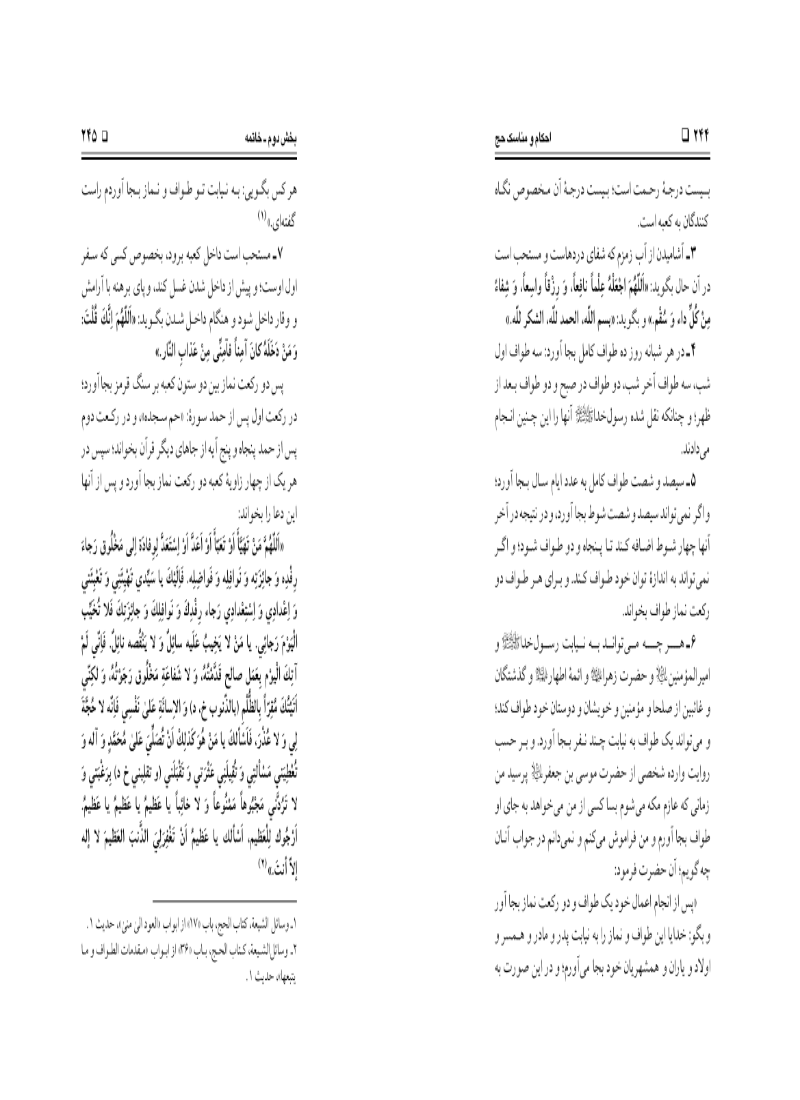 ۲۴۴ ❑ احکام و مناسک حج
بـیست درجهٔ رحـمت است؛ بیست درجهٔ آن مـخصوص نگـاه
کنندگان به کعبه است.
۳ـ آشامیدن از آب زمزم که شفای دردهاست و مستحب است
در آن حال بگوید: «اَللّهُمَ اجْعَلْهُ عِلْماً نافِعاً، وَ رِزْقاً واسِعاً، وَ شِفاءً
مِنْ کُلِّ داء وَ سُقْمٍ.» و بگوید: «بسم اللّه، الحمد للّه، الشکر للّه.»
۴ـ در هر شبانه روز ده طواف کامل بجا آورد: سه طواف اول
شب، سه طواف آخر شب، دو طواف در صبح و دو طواف بـعد از
ظهر؛ و چنانکه نقل شده رسول‌خداﷺ آنها را این چـنین انـجام
می‌دادند.
۵ـ سیصد و شصت طواف کامل به عدد ایام سـال بـجا آورد؛
و اگر نمی‌تواند سیصد و شصت شوط بجا آورد، و در نتیجه در آخر
آنها چهار شـوط اضـافه کـند تـا پـنجاه و دو طواف شـود؛ و اگـر
نمی‌تواند به اندازهٔ توان خود طواف کـند. و بـرای هـر طواف دو
رکعت نماز طواف بخواند.
۶ـ هـــر چـــه مـی‌توانـد بــه نـیابت رسـول‌خداﷺ و
امیرالمؤمنین و حضرت زهرا و ائمهٔ اطهار و گذشتگان
و غائبین از صلحا و مؤمنین و خویشان و دوستان خود طواف کند؛
و می‌تواند یک طواف به نیابت چـند نـفر بـجا آورد. و بـر حسب
روایت وارده شخصی از حضرت موسی بن جعفر پرسید من
زمانی که عازم مکه می‌شوم بسا کسی از من می‌خواهد به جای او
طواف بجا آورم و من فراموش می‌کنم و نمی‌دانم در جواب آنـان
چه گویم؛ آن حضرت فرمود:
«پس از انجام اعمال خود یک طواف و دو رکعت نماز بجا آور
و بگو: خدایا این طواف و نماز را به نیابت پدر و مادر و همسر و
اولاد و یاران و همشهریان خود بجا می‌آورم؛ و در این صورت به
بخش دوم ـ خاتمه ❑ ۲۴۵
هر کس بگـویی: بـه نـیابت تـو طـواف و نـماز بـجا آوردم راست
گفته‌ای.»(۱)
۷ـ مستحب است داخل کعبه برود، بخصوص کسی که سـفر
اول اوست؛ و پیش از داخل شدن غسـل کند، و پـای برهنه با آرامش
و وقار داخل شود و هنگام داخـل شـدن بگـوید: «اَللّهُمَ اِنَّكَ قُلْتَ:
وَ مَنْ دَخَلَهُ كانَ آمِناً فَآمِنِّى مِنْ عَذابِ النّارِ.»
پس دو رکعت نماز بین دو ستون کعبه بر سنگ قرمز بجا آورد؛
در رکعت اول پس از حمد سورهٔ: «حم سجده»، و در رکـعت دوم
پس از حمد پنجاه و پنج آیه از جاهای دیگر قرآن بخواند؛ سپس در
هر یک از چهار زاویهٔ کعبه دو رکعت نماز بجا آورد و پس از آنها
این دعا را بخواند:
«اَللّهُمَّ مَنْ تَهَيَّأَ أَوْ تَعَبَّأَ أَوْ أَعَدَّ أَوْ اِسْتَعَدَّ لِوِفادَةٍ اِلى مَخْلُوقٍ رَجاءَ
رِفْدِهِ وَ جائِزَتِهِ وَ نَوافِلِهِ وَ فَواضِلِهِ. فَاِلَيْكَ يا سَيِّدي تَهْيِئَتي وَ تَعْبِئَتي
وَ اِعْدادي وَ اِسْتِعْدادي رَجاءَ رِفْدِكَ وَ نَوافِلِكَ وَ جائِزَتِكَ فَلا تُخَيِّبِ
الْيَوْمَ رَجائي، يا مَنْ لا يَخيبُ عَلَيهِ سائِلٌ وَ لا يَنْقُصه نائِلٌ، فَاِنّي لَمْ
آتِكَ الْيَوْمَ بِعَمَلٍ صالِحٍ قَدَّمْتُهُ، وَ لا شَفاعَةِ مَخْلُوقٍ رَجَوْتُهُ، وَ لكِنّي
أتَيْتُكَ مُقِرّاً بِالظُّلْمِ (بالذنوب خ، د) وَ الاِسائَةِ عَلىٰ نَفْسي فَاِنَّه لا حُجَّةَ
لي وَ لا عُذْرَ، فَاَسْأَلُكَ يا مَنْ هُوَ كَذلِكَ أَنْ تُصَلِّيَ عَلىٰ مُحَمَّدٍ وَ آله وَ
تُعْطِيَني مَسْأَلَتي وَ تُقيلَني عَثْرَتي وَ تَقْبَلَني (و تقلبني خ د) بِرَغْبَتي وَ
لا تَرُدَّني مَجْبُوهاً مَمْنُوعاً وَ لا خائِباً يا عَظيمُ يا عَظيمُ يا عَظيمُ،
اَرْجُوكَ لِلْعَظيمِ، اَسْأَلُكَ يا عَظيمُ أَنْ تَغْفِرَلِيَ الذَّنْبَ العَظيمَ لا إلهَ
إلاّ أنتَ.»(۲)
۱ـ وسائل الشیعة، کتاب الحج، باب «۱۷» از ابواب «العود الی منی»، حدیث ۱.
۲ـ وسائل الشیعة، کـتاب الحـج، بـاب «۳۶» از ابـواب «مـقدمات الطـواف و مـا
یتبعها»، حدیث ۱.